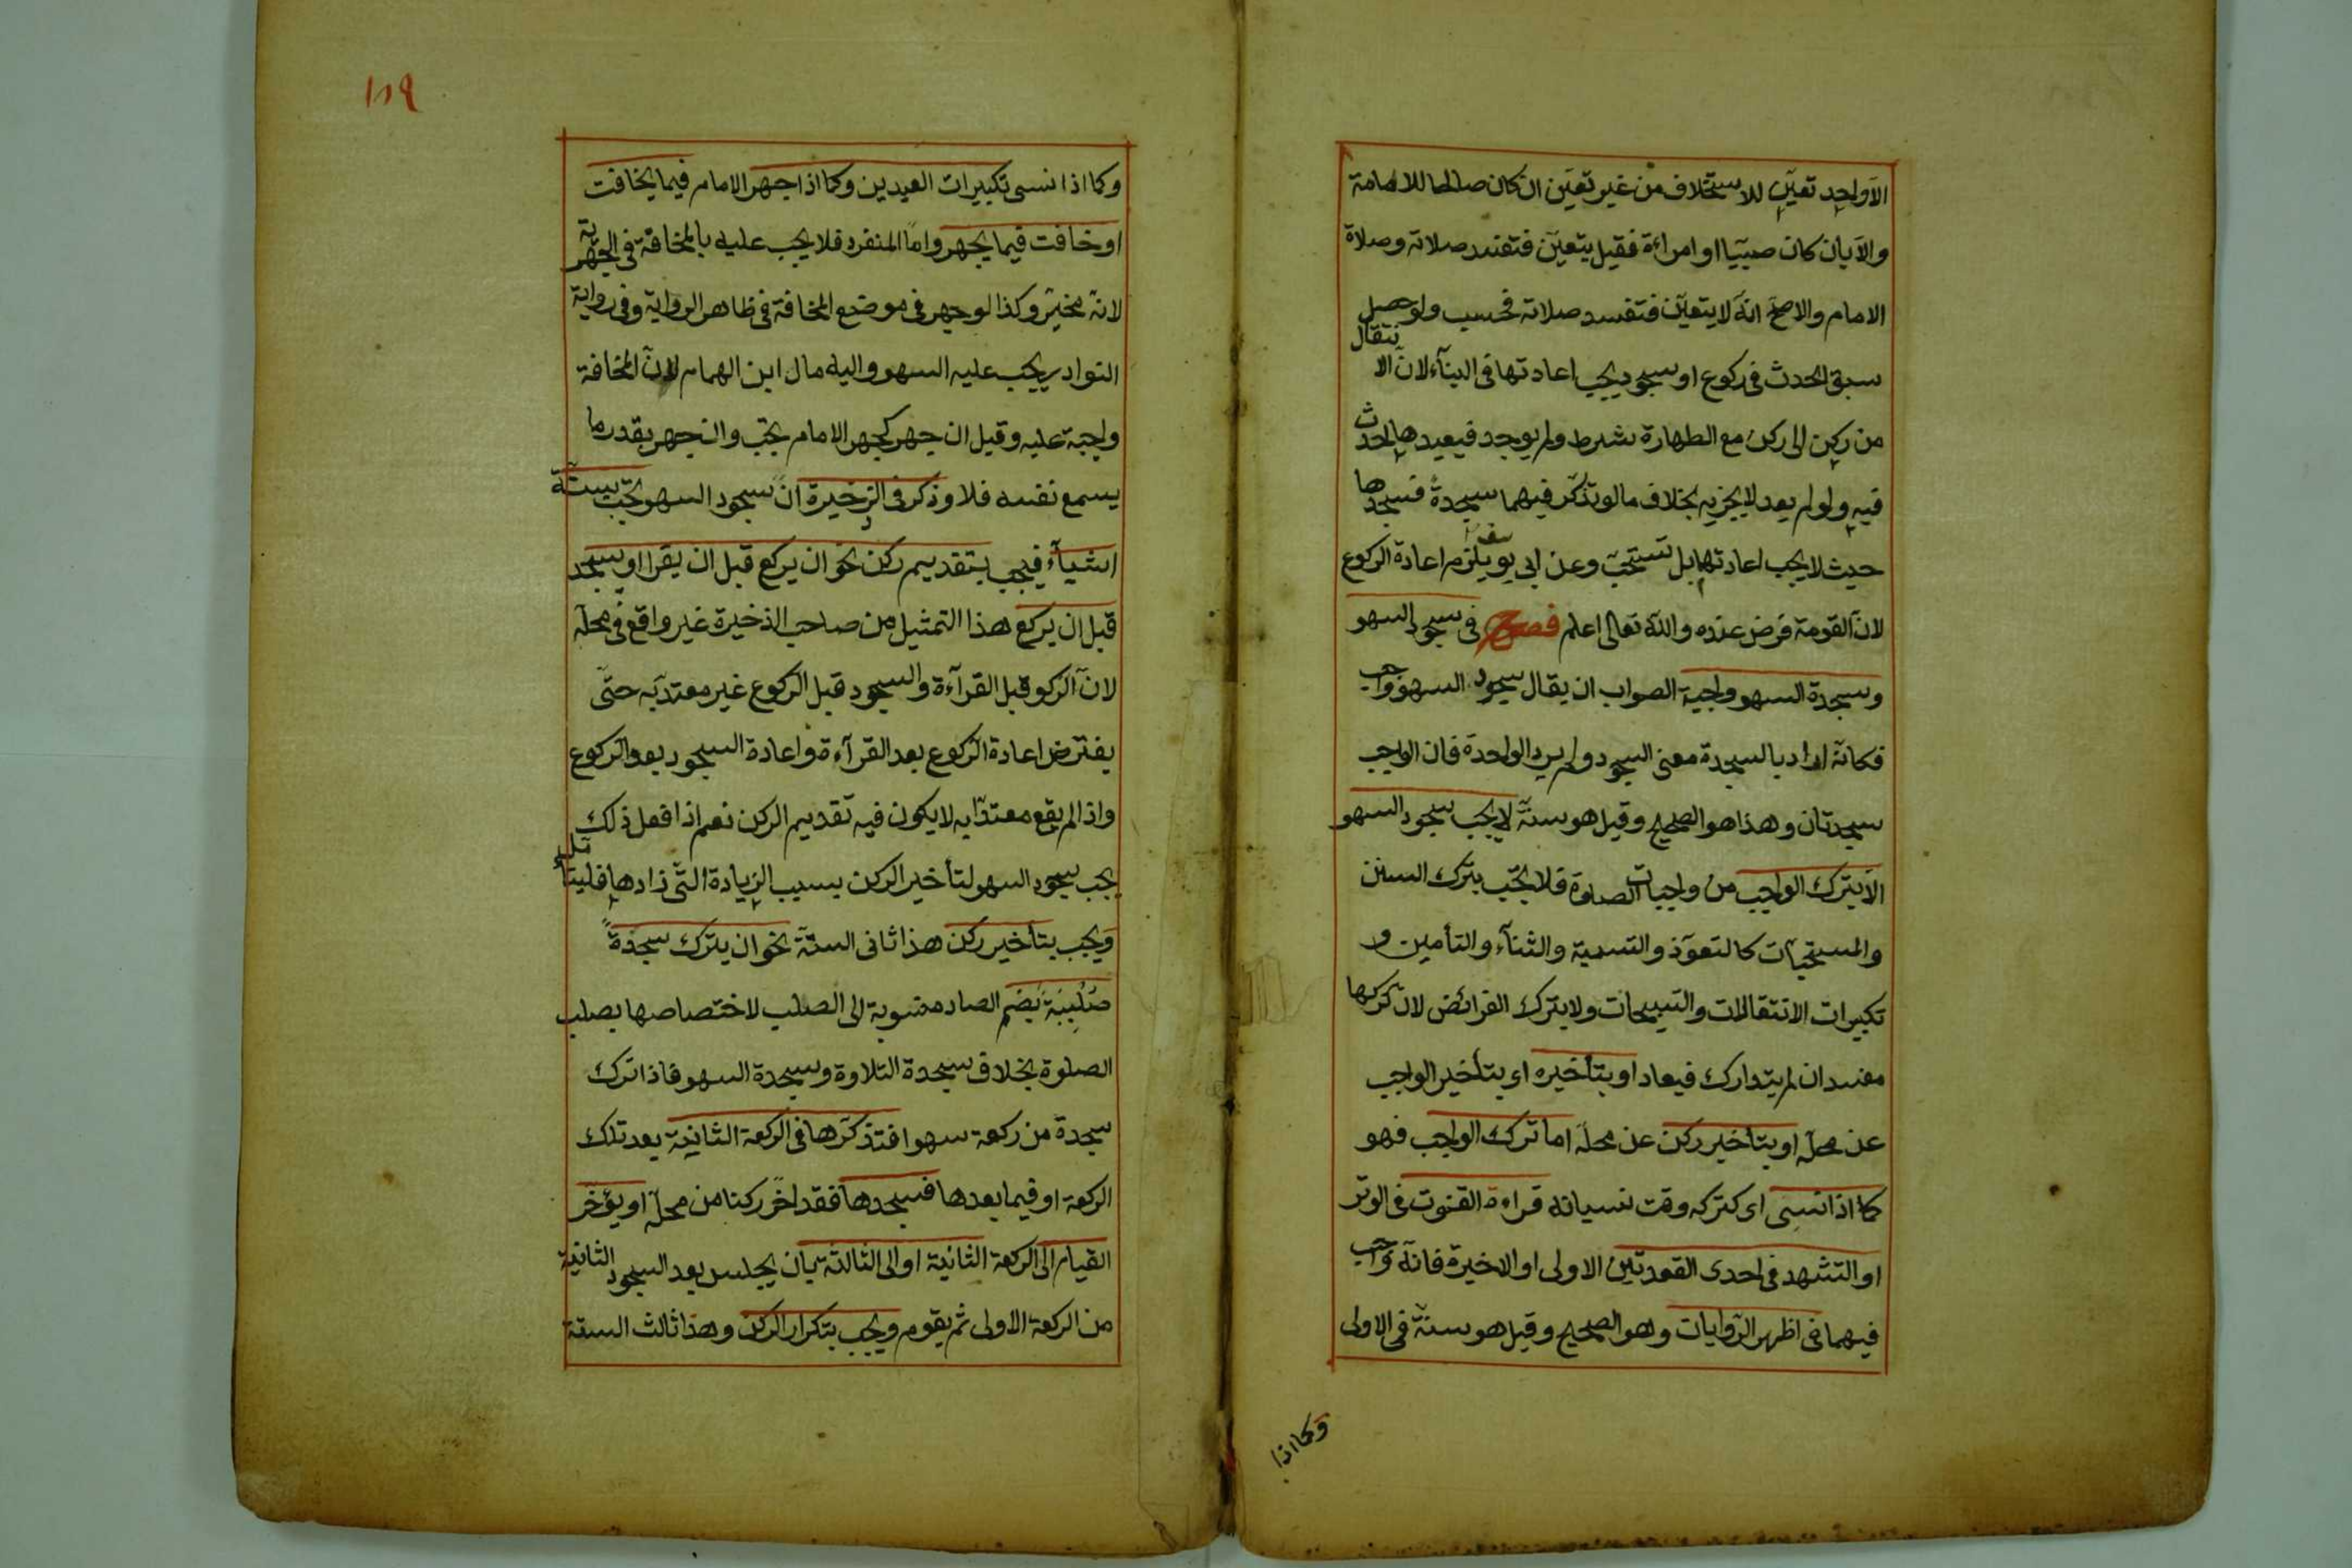 الا واحد تعين للاستخلاف من غير تعين ان كان صالحا للامامة
والا بان كان صبيا او امراءة فقيل يتعين فتفسد صلاته وصلاة
الامام والاصح انه لا يتعين فتفسد صلاته فحسب ولو حصل
سبق الحدث فى ركوع او سجود يجب اعادتها فى البنآء لان الانتقال
من ركن الى ركن مع الطهارة شرط ولم يوجد فيعيدها لحدث
فيه ولو لم يعد لا يجزيه بخلاف ما لو تذكر فيهما سجدة فسجدها
حيث لا يجب اعادتها بل تستحب وعن ابى يوسف يلزم اعادة الركوع
لان القومة فرض عنده والله تعالى اعلم فصل فى سجود السهو
وسجدة السهو واجبة الصواب ان يقال سجود السهو واجب
فكانه اراد بالسجدة معنى السجود ولم يرد الواحدة فان الواجب
سجدتان وهذا هو الصحيح وقيل هو سنة لا يجب سجود السهو
الا بترك الواجب من واجبات الصلوة فلا يجب بترك السنن
والمستحبات كالتعوذ والتسمية والثنآء والتأمين و
تكبيرات الانتقالات والتسبيحات ولا بترك الفرائض لان تركها
مفسد ان لم يتدارك فيعاد او بتأخيره اى بتأخير الواجب
عن محله او بتأخير ركن عن محله اما ترك الواجب فهو
كما اذا نسى اى كتركه وقت نسيانه قراءة القنوت فى الوتر
او التشهد فى احدى القعدتين الاولى او الاخيرة فانه واجب
فيهما فى اظهر الروايات وهو الصحيح وقيل هو سنة فى الاولى
وكما اذا
١٨٩
وكما اذا نسى تكبيرات العيدين وكما اذا جهر الامام فيما يخافت
او خافت فيما يجهر واما المنفرد فلا يجب عليه بالمخافة فى الجهرية
لانه مخير وكذا لو جهر فى موضع المخافة فى ظاهر الرواية وفى رواية
النوادر يجب عليه السهو واليه مال ابن الهمام لان المخافة
واجبة عليه وقيل ان جهر كجهر الامام يجب وان جهر بقدر ما
يسمع نفسه فلا وذكر فى الذخيرة ان سجود السهو يجب بستة
اشيآء فيجب بتقديم ركن نحو ان يركع قبل ان يقرا او يسجد
قبل ان يركع هذا التمثيل من صاحب الذخيرة غير واقع فى محله
لان الركوع قبل القرآءة والسجود قبل الركوع غير معتد به حتى
يفترض اعادة الركوع بعد القرآءة واعادة السجود بعد الركوع
واذا لم يقع معتدا به لا يكون فيه تقديم الركن نعم اذا فعل ذلك
يجب سجود السهو لتأخير الركن بسبب الزيادة التى زادها فليتأمل
ويجب بتأخير ركن هذا ثانى الستة نحو ان يترك سجدة
صلبية بضم الصاد منسوبة الى الصلب لاختصاصها بصلب
الصلوة بخلاف سجدة التلاوة وسجدة السهو فاذا ترك
سجدة من ركعة سهوا فتذكرها فى الركعة الثانية بعد تلك
الركعة او فيما بعدها فسجدها فقد اخر ركنا من محله او يؤخر
القيام الى الركعة الثانية او الى الثالثة بان يجلس بعد السجود الثانية
من الركعة الاولى ثم يقوم ويجب بتكرار الركن وهذا ثالث الستة